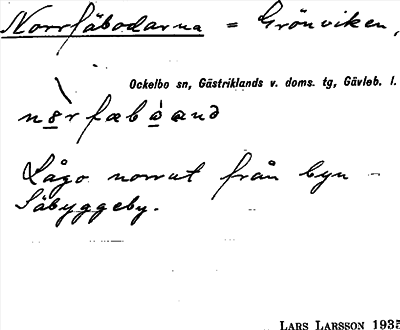 Norrfäbodarna = Grönviken,
Ockelbo sn, Gästriklands v. doms. tg, Gävleb. l.
nǫ̀rfæbàand
Lågo norrut från byn
Säbyggeby.
LARS LARSSON 1935